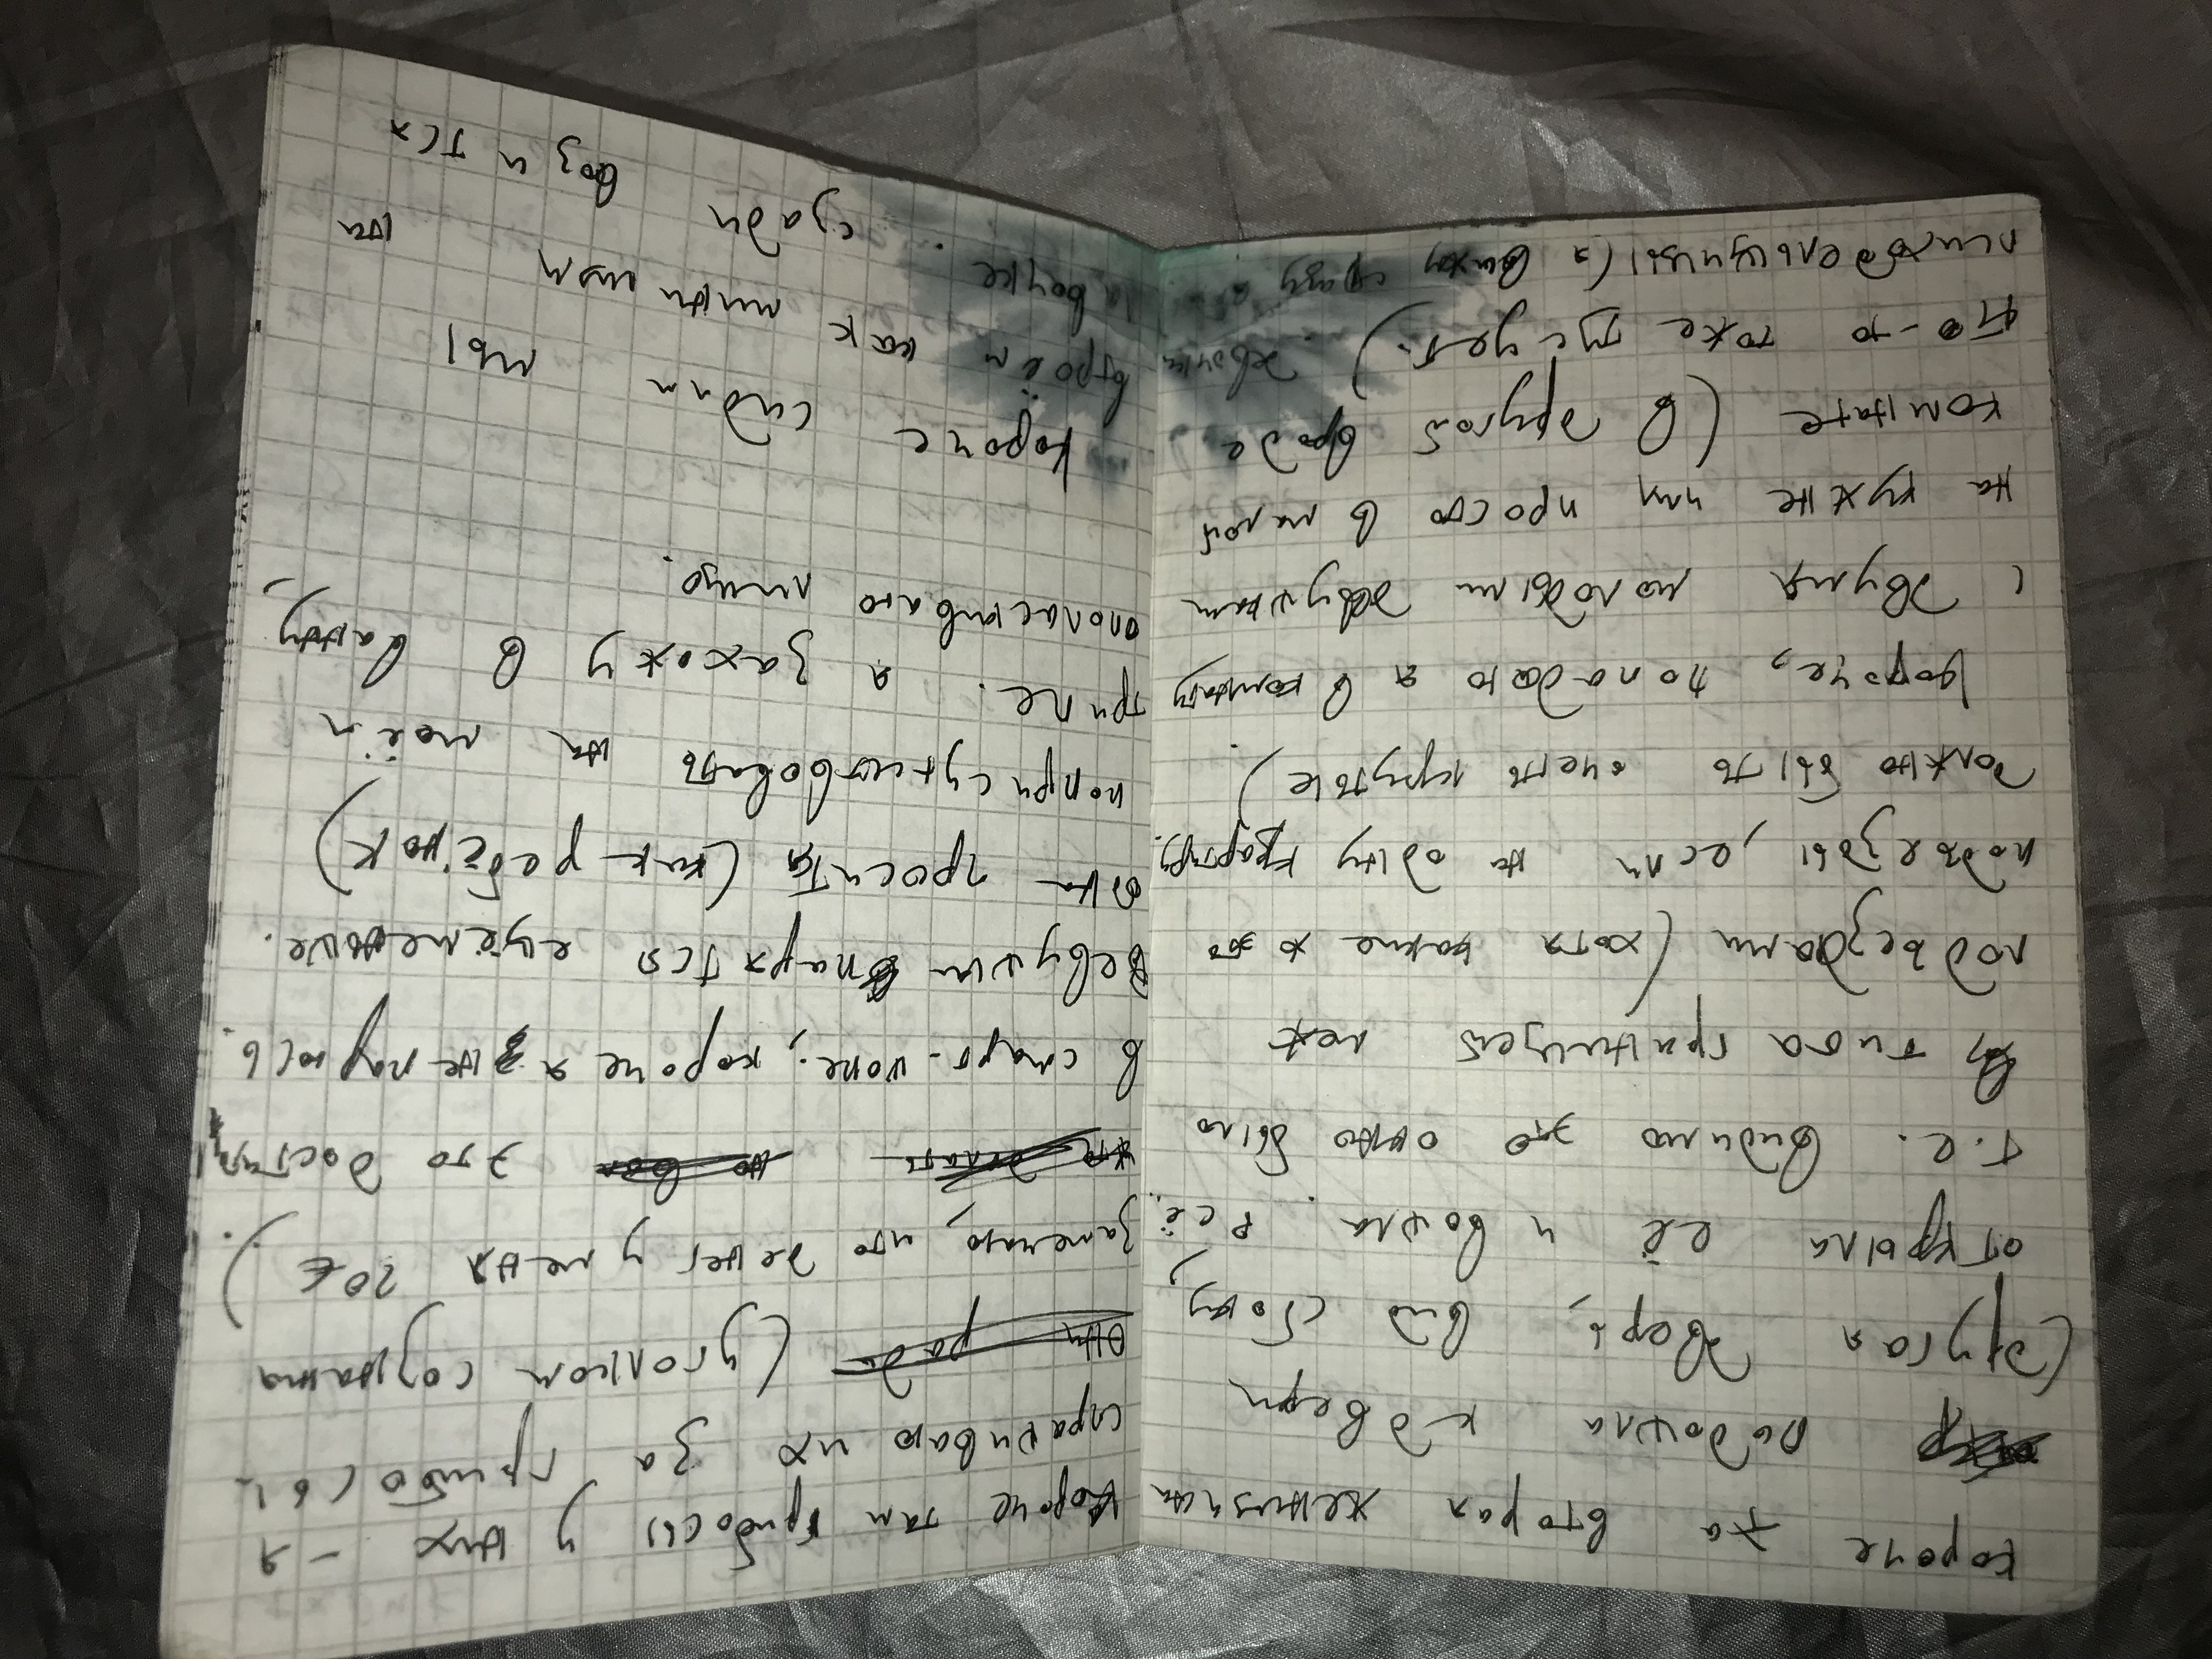 короче та вторая женщина
подошла к двери
(другая дверь, вид сбоку,
открыла её и вошла. всё.
т.е. видимо это окно было
типа границей меж
подъездами (хотя какие ж это
подъезды, если на одну квартиру.
должно быть очень крутые).
Короче, попадаю я в комнату
с двумя молодыми девушками
на кухне или просто в малой
комнате (в другой вроде
кто-то тоже тусует.) девочки
психодельщицы (я вижу сразу
Короче там грибосы у них - я
спрашиваю их за грибосы.
они рады (уголком сознания
замечаю, что денег у меня 20€).
что делать но вой это достити
в смарт-шопе; короче я не парюсь.
Девушки парятся ещё меньше.
одна просится (как ребёнок)
поприсутствовать на моём
трипе. я захожу в ванну,
ополаскиваю лицо.
Короче сидим мы
втроём как минимум на
лавочке. сзади возится